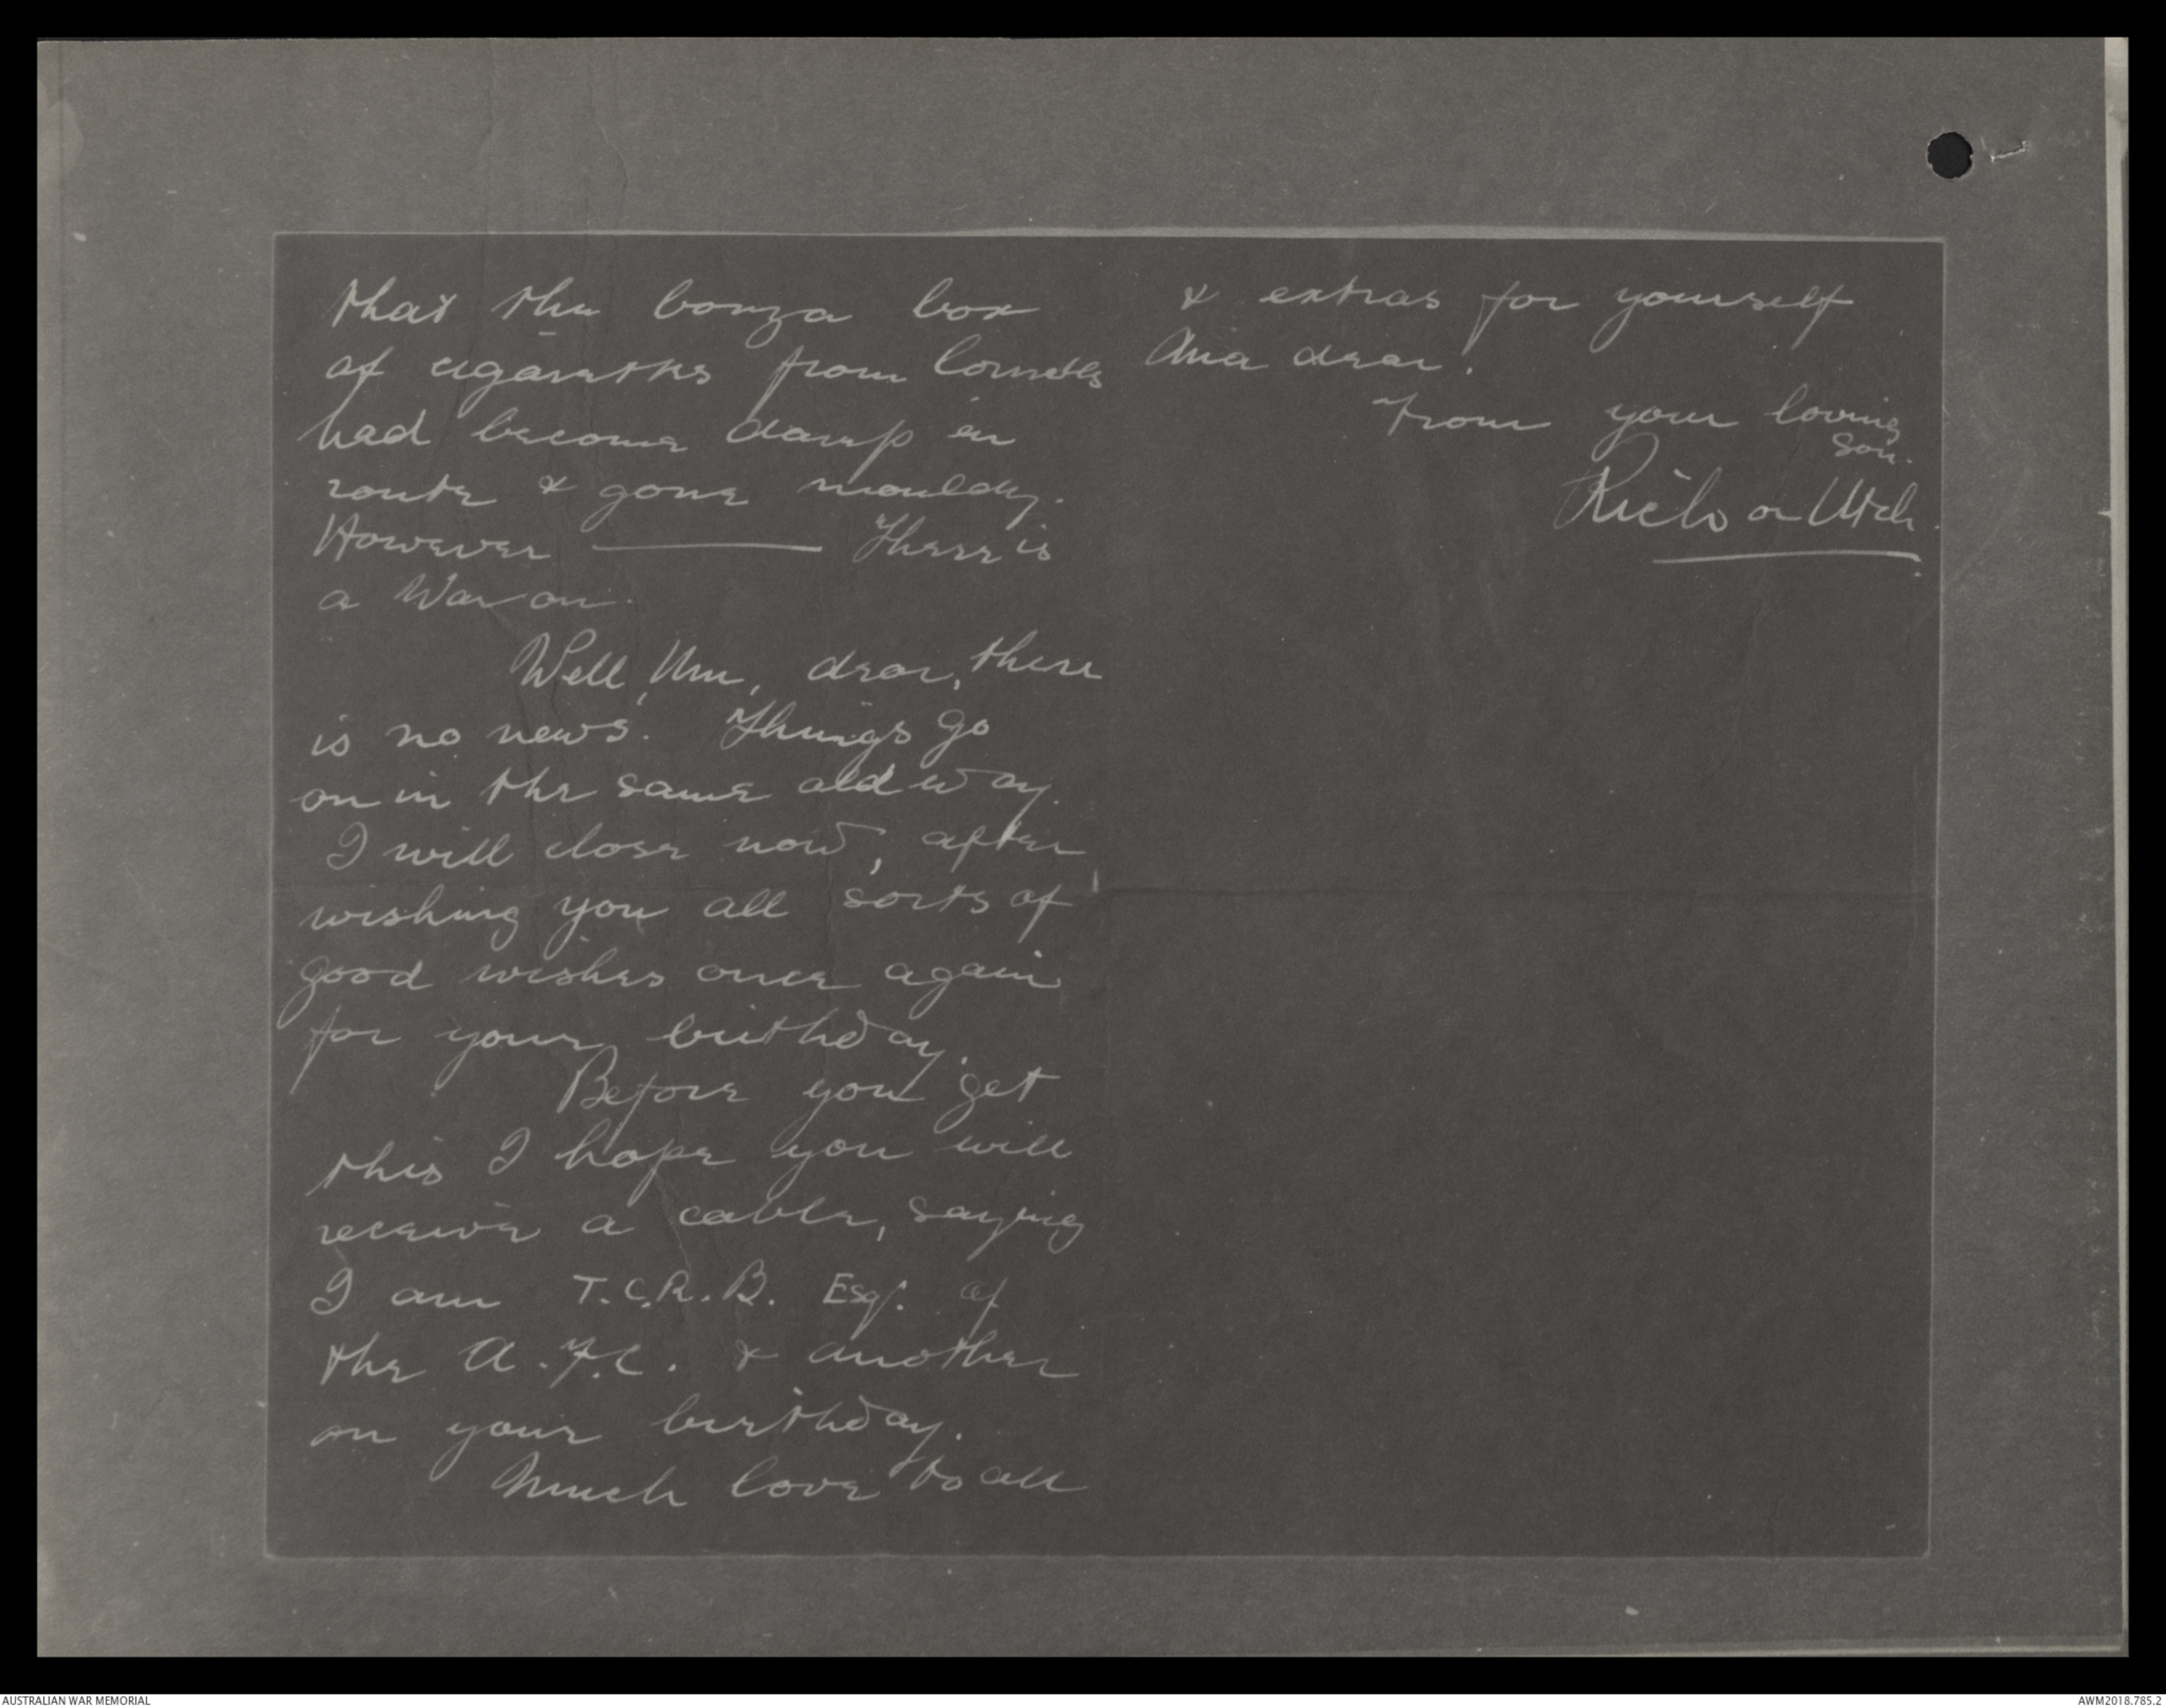 that the bonza box
of cigarettes from Cornells
had become damp en
route & gone mouldy.
However ——— There is
a War on.
Well, Mu, dear, there
is no news. Things go
on in the same old way.
I will close now, after
wishing you all sorts of
good wishes once again
for your birthday.
Before you get
this I hope you will
receive a cable, saying
I am T.C.R.B. Esq. of
the A.F.C. & another
on your birthday.
Much love to all
& extras for yourself
dear.
From your loving
Son.
Rich or
AUSTRALIAN WAR MEMORIAL
AWM2018.785.2